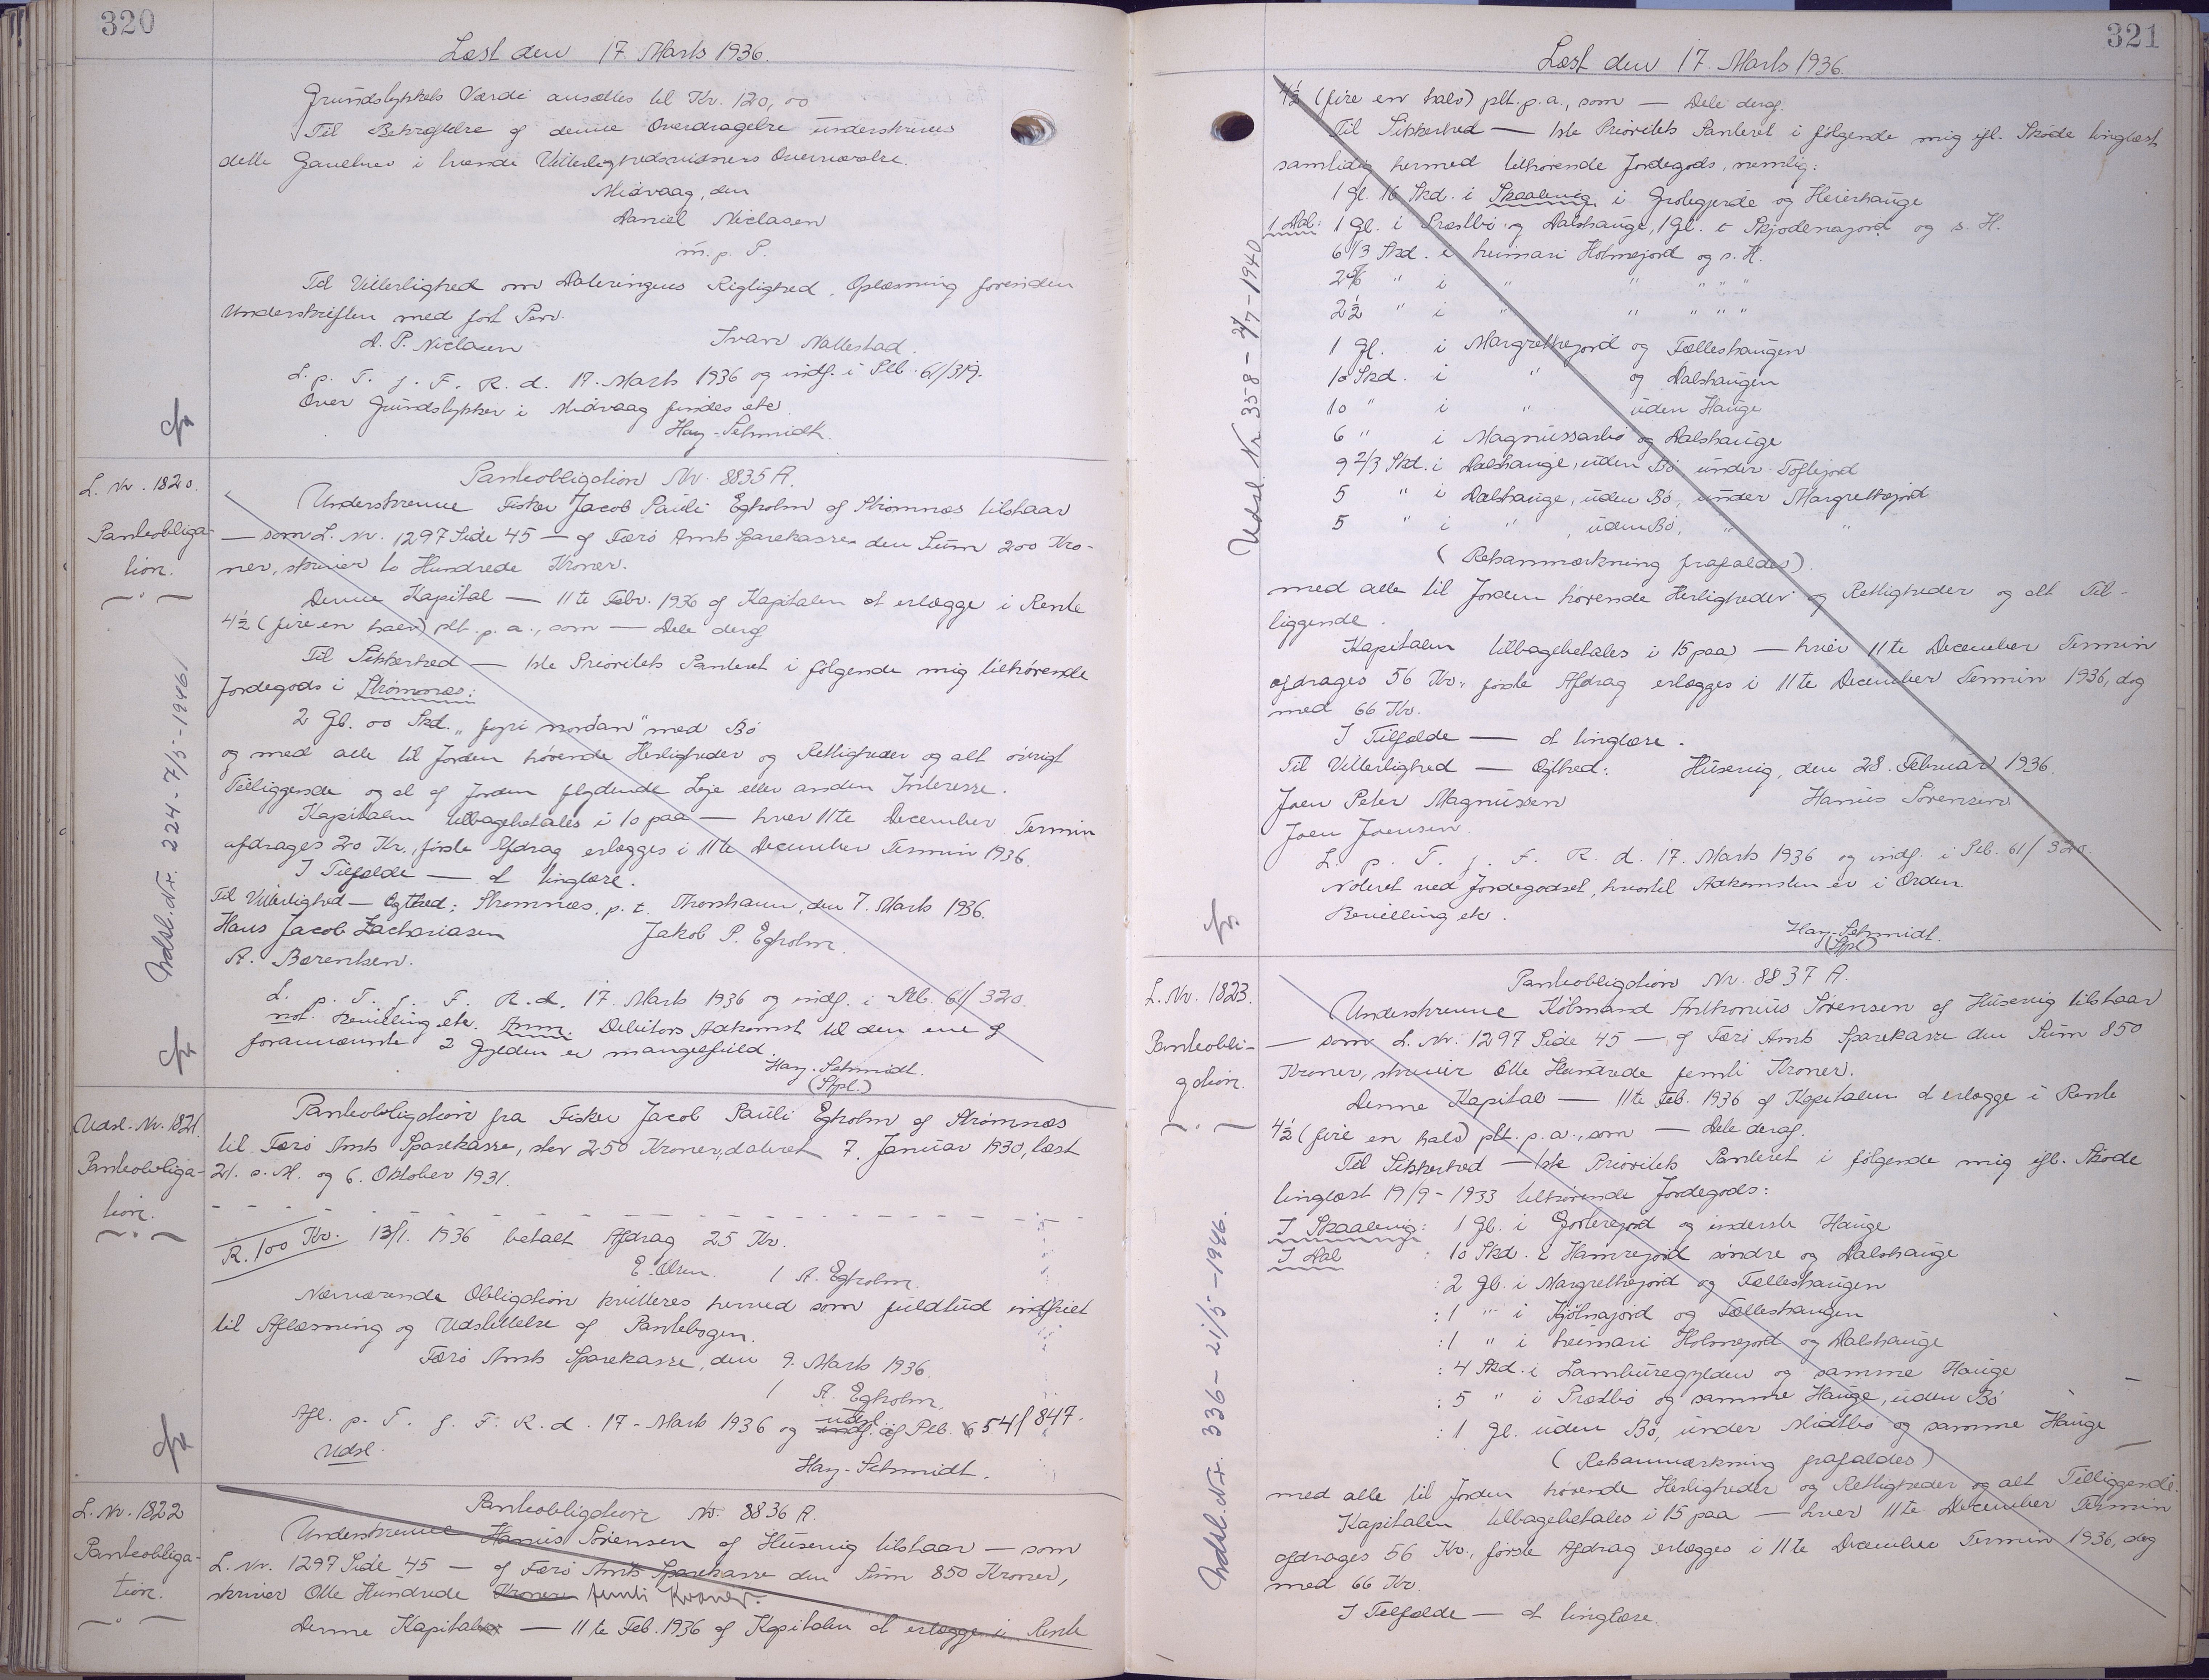 320
Læst den 17. Marts 1936.
Grundstykkets Værdi ansættes til Kr. 120,00
Til Bekræftelse af denne Overdragelse underskrives
dette Gavebrev i tvende Vitterlighedsvidners Overværelse.
Midvaag, den
Daniel Niclasen
m. p. P.
Til Vitterlighed om Dateringens Rigtighed, Oplæsning forinden
Underskriften med ført Pen.
D. P. Niclasen Ivar Nattestad.
L. p. T. f. F. R. d. 17. Marts 1936 og indf. i Plb. 61/319.
Over Grundstykker i Midvaag findes etc.
Hay-Schmidt.
L. Nr. 1820.
Panteobliga-
tion.
Udsl. Nr. 224 - 7/5 - 1946
Panteobligation Nr. 8835 A.
Underskrevne Fisker Jacob Pauli Egholm af Strømnæs tilstaar
— som L. Nr. 1297 Side 45 — af Færø Amts Sparekasse den Sum 200 Kro-
ner, skriver to Hundrede Kroner.
Denne Kapital — 11te Febr. 1936 af Kapitalen at erlægge i Rente
4½ (fire en halv) pCt. p. a., som — Dele deraf
Til Sikkerhed — 1ste Prioritets Panteret i følgende mig tilhørende
Jordegods i Strømnæs:
2 Gl. 00 Skd. „fyri norðan" med Bø
og med alle til Jorden hørende Herligheder og Rettigheder og alt øvrigt
Tilliggende og al af Jorden flydende Leje eller anden Interesse.
Kapitalen tilbagebetales i 10 paa — hver 11te December Termin
afdrages 20 Kr., første Afdrag erlægges i 11te December Termin 1936.
I Tilfælde — at tinglæse.
Til Vitterlighed — Egthed: Strømnæs, p. t. Thorshavn, den 7. Marts 1936.
Hans Jacob Zachariasen Jakob P. Egholm.
R. Berentsen.
L. p. T. f. F. R. d. 17. Marts 1936 og indf. i Plb. 61/320.
not. Bevilling etc. Anm. Debitors Adkomst til den ene af
forannævnte 2 Gylden er mangelfuld.
Hay-Schmidt.
(Stpl.)
Udsl. Nr. 1821.
Panteobliga-
tion.
Panteobligation fra Fisker Jacob Pauli Egholm af Strømnæs
til Færø Amts Sparekasse, stor 250 Kroner, dateret 7. Januar 1930, læst
21. s. M. og 6. Oktober 1931.
R. 100 Kr. 13/1. 1936 betalt Afdrag 25 Kr.
E. Olsen. / A. Egholm.
Nærværende Obligation kvitteres herved som fuldtud indfriet
til Aflæsning og Udslettelse af Pantebogen.
Færø Amts Sparekasse, den 9. Marts 1936.
/ A. Egholm.
Afl. p. T. f. F. R. d. 17. Marts 1936 og indf. udsl. af Plb. 54/847.
Udsl.
Hay-Schmidt.
L. Nr. 1822
Panteobliga-
tion.
Panteobligation Nr. 8836 A.
Underskrevne Hanus Sørensen af Husevig tilstaar — som
L. Nr. 1297 Side 45 — af Færø Amts Sparekasse den Sum 850 Kroner,
skriver Otte Hundrede Kroner femti Kroner.
Denne Kapital — 11te Feb. 1936 af Kapitalen at erlægge i Rente
321
Læst den 17. Marts 1936.
4½ (fire en halv) pCt. p. a., som — Dele deraf.
Til Sikkerhed — 1ste Prioritets Panteret i følgende mig ifl. Skøde tinglæst
samtidig hermed tilhørende Jordegods, nemlig:
1 Gl. 16 Skd. i Skaalevig i Grotegjerde og Heiershauge
I Dal: 1 Gl. i Præstbø og Dalshauge, 1 Gl. i Skjodenajord og s. H.
6 1/3 Skd. i heimari Holmejord og s. H.
" i " " " " "
2½ " i " " " " "
1 Gl. i Margrethejord og Fælleshaugen
10 Skd. i " og Dalshaugen
10 " i " uden Hauge
6 " i Magnussarbø og Dalshauge
9 2/3 Skd. i Dalshauge, uden Bø under Toftejord
5 " i Dalshauge, uden Bø, under Margrethejord
5 " i " , uden Bø, " "
(Retsanmærkning frafaldes).
med alle til Jorden hørende Herligheder og Rettigheder og alt Til-
liggende.
Kapitalen tilbagebetales i 15 paa — hver 11te December Termin
afdrages 56 Kr., første Afdrag erlægges i 11te December Termin 1936, dog
med 66 Kr.
I Tilfælde — at tinglæse.
Til Vitterlighed — Egthed: Husevig, den 28. Februar 1936.
Joen Peter Magnussen Hanus Sørensen
Joen Joensen.
L. p. T. f. F. R. d. 17. Marts 1936 og indf. i Plb. 61/320.
Noteret ved Jordegodset, hvortil Adkomsten er i Orden.
Bevilling etc.
Hay-Schmidt.
(Stpl)
Udsl. Nr. 358 - 2/7 - 1940
L. Nr. 1823.
Panteobli-
gation.
Udsl. Nr. 336 - 21/5 - 1946.
Panteobligation Nr. 8837 A.
Underskrevne Købmand Anthonius Sørensen af Husevig tilstaar
— som L. Nr. 1297 Side 45 — af Færø Amts Sparekasse den Sum 850
Kroner, skriver Otte Hundrede femti Kroner.
Denne Kapital — 11te Feb. 1936 af Kapitalen at erlægge i Rente
4½ (fire en halv) pCt. p. a., som — Dele deraf.
Til Sikkerhed — 1ste Prioritets Panteret i følgende mig ifl. Skøde
tinglæst 19/9 - 1933 tilhørende Jordegods:
I Skaalevig: 1 Gl. i Gosterejord og inderste Hauge
I Dal : 10 Skd. i Hamrejord søndre og Dalshauge
: 2 Gl. i Margrethejord og Fælleshaugen
: 1 " i Kjølnajord og Fælleshaugen
: 1 " i heimari Holmejord og Dalshauge
: 4 Skd. i Lamburegylden og samme Hauge
: 5 " i Præstbø og samme Hauge, uden Bø
: 1 Gl. uden Bø, under Midtbø og samme Hauge
(Retsanmærkning frafaldes)
med alle til Jorden hørende Herligheder og Rettigheder og alt Tilliggende.
Kapitalen tilbagebetales i 15 paa — hver 11te December Termin
afdrages 56 Kr., første Afdrag erlægges i 11te December Termin 1936, dog
med 66 Kr.
I Tilfælde — at tinglæse.